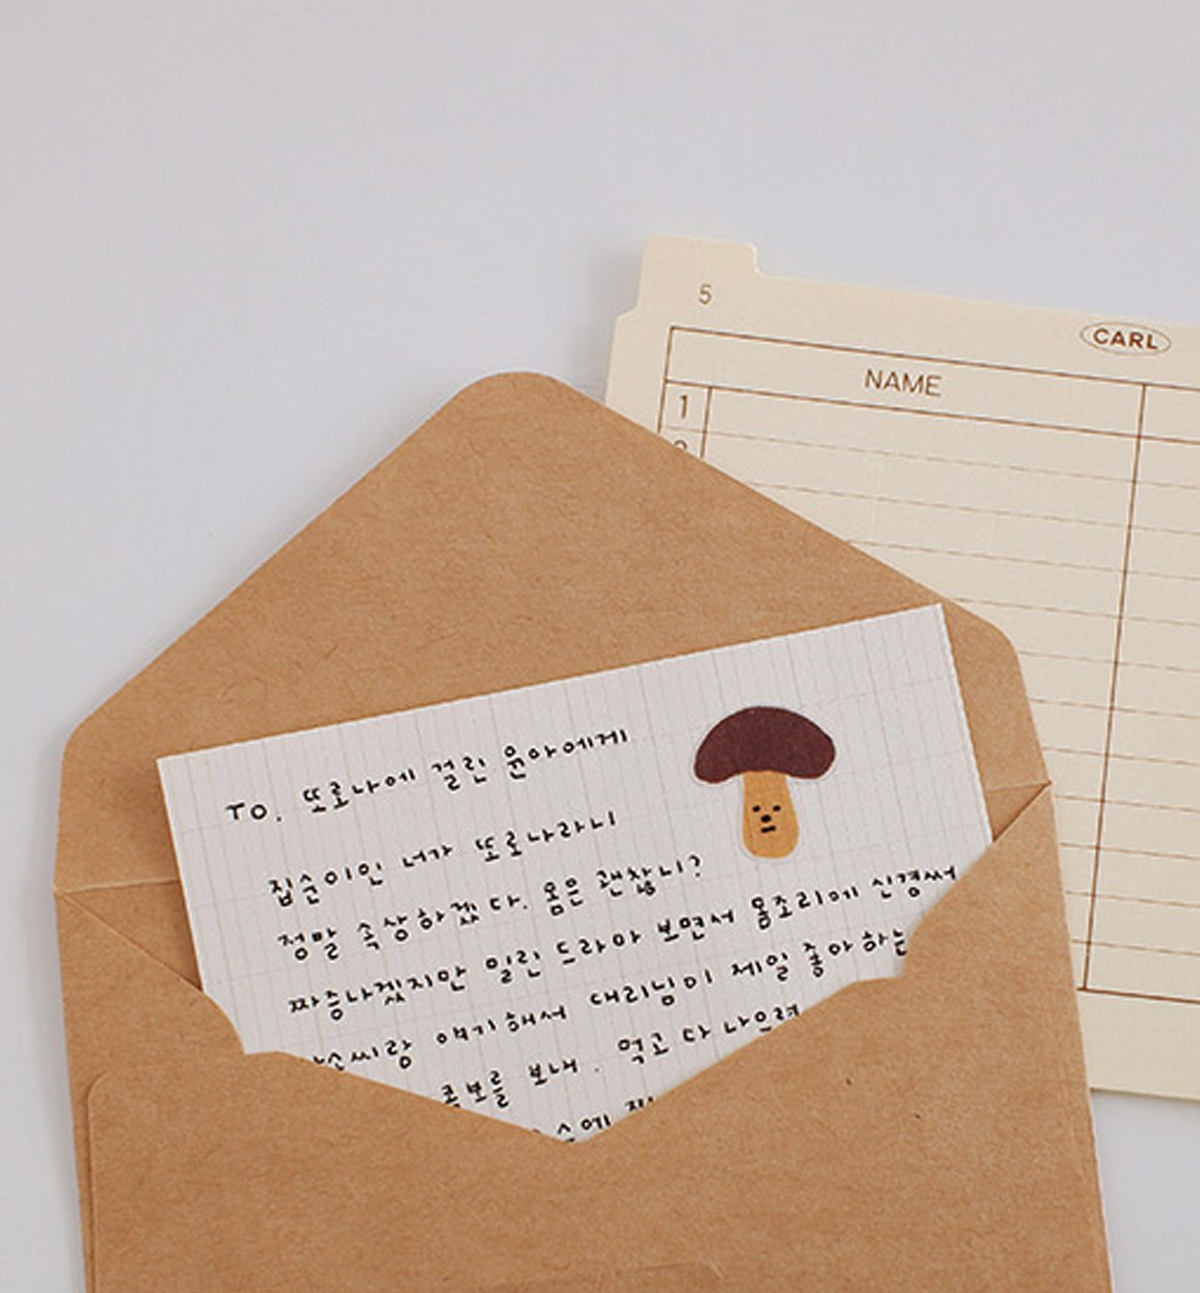 5
CARL
NAME
1
TO. 또로나에 걸린 윤아에게
집순이인 너가 또로나라니
정말 속상하겠다. 몸은 괜찮니?
짜증나겠지만 밀린 드라마 보면서 몸조리에 신경써
얘기해서 대리님이 제일 좋아하는
콤보를 보내. 먹고 다 나으려